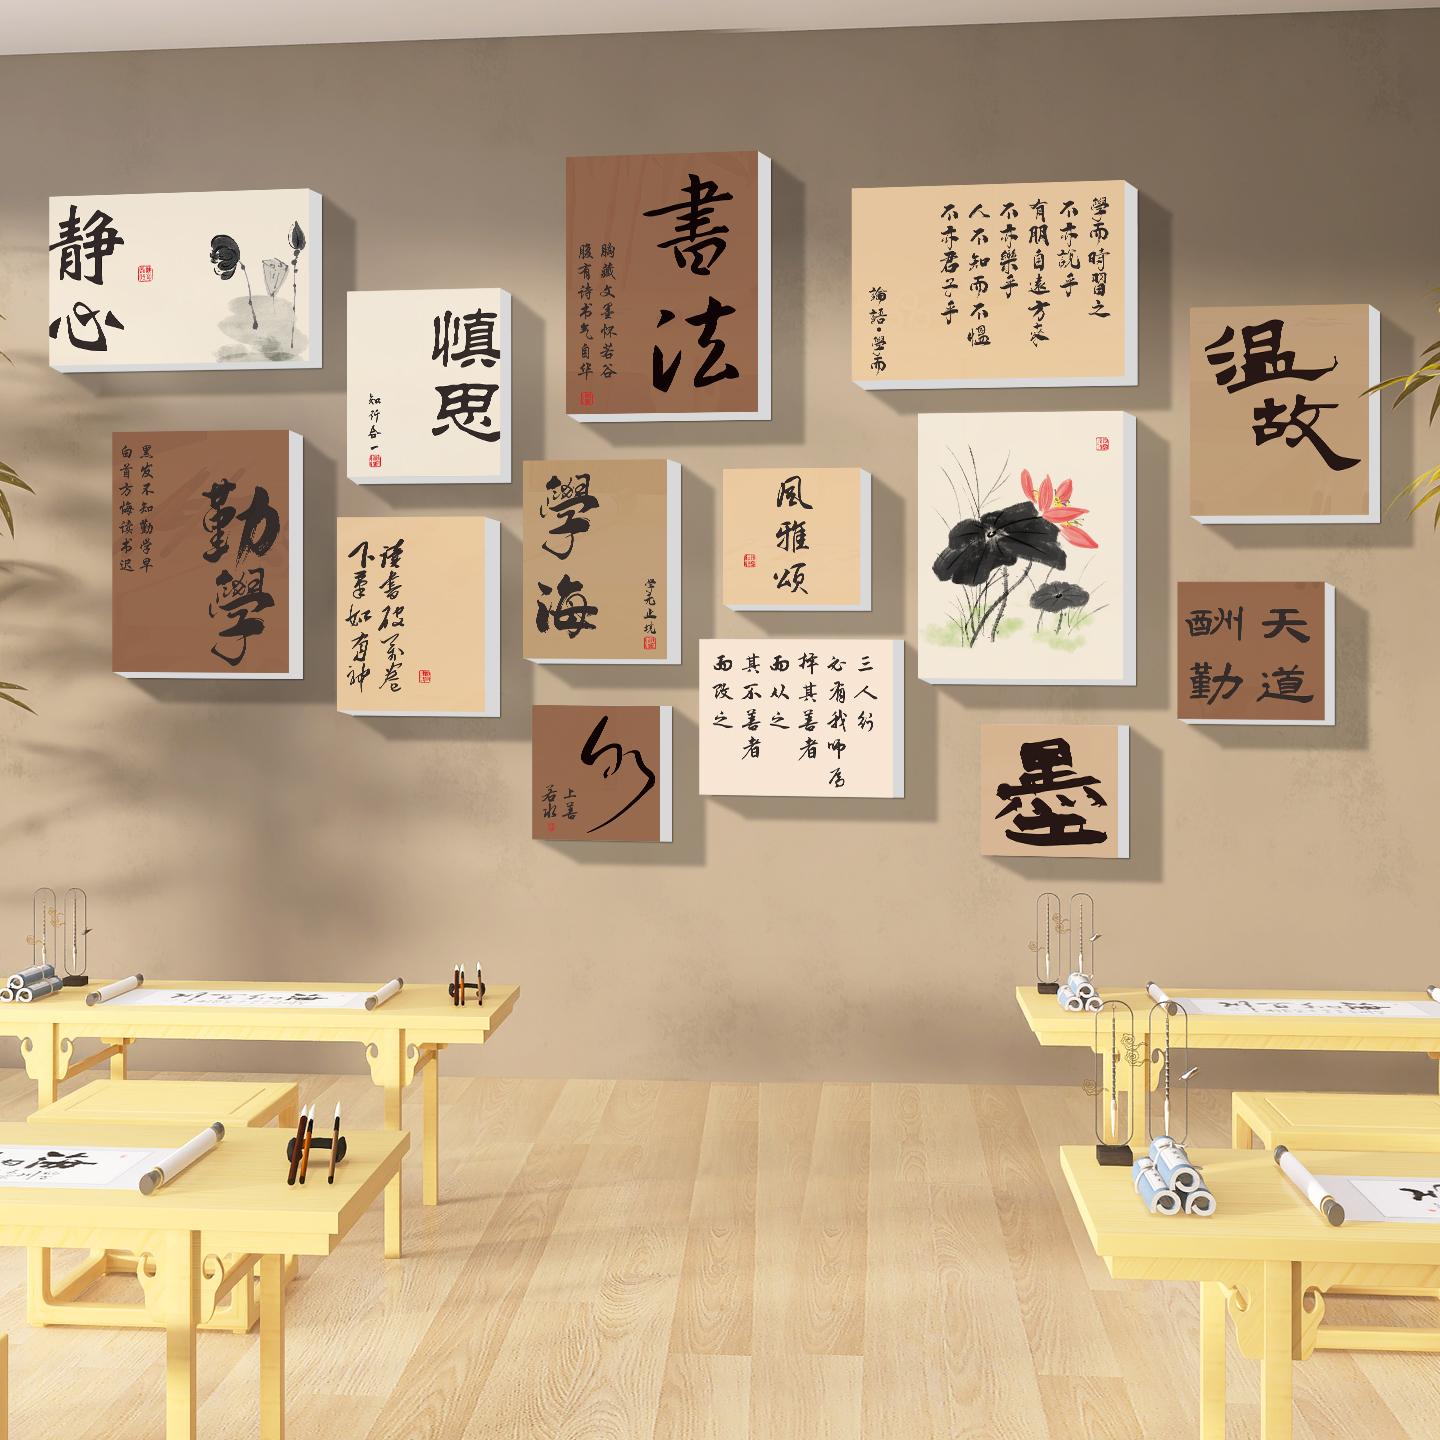 静心
慎思
知行合一
書法
胸藏文墨怀若谷
腹有诗书气自华
學而時習之
不亦說乎
有朋自遠方來
不亦樂乎
人不知而不愠
不亦君子乎
論語·學而
温故
勤學
黑发不知勤学早
白首方悔读书迟
读書破万卷
下筆如有神
學海
学无止境
風雅頌
天道
酬勤
三人行
必有我师焉
择其善者
而从之
其不善者
而改之
水
上善
若水
墨